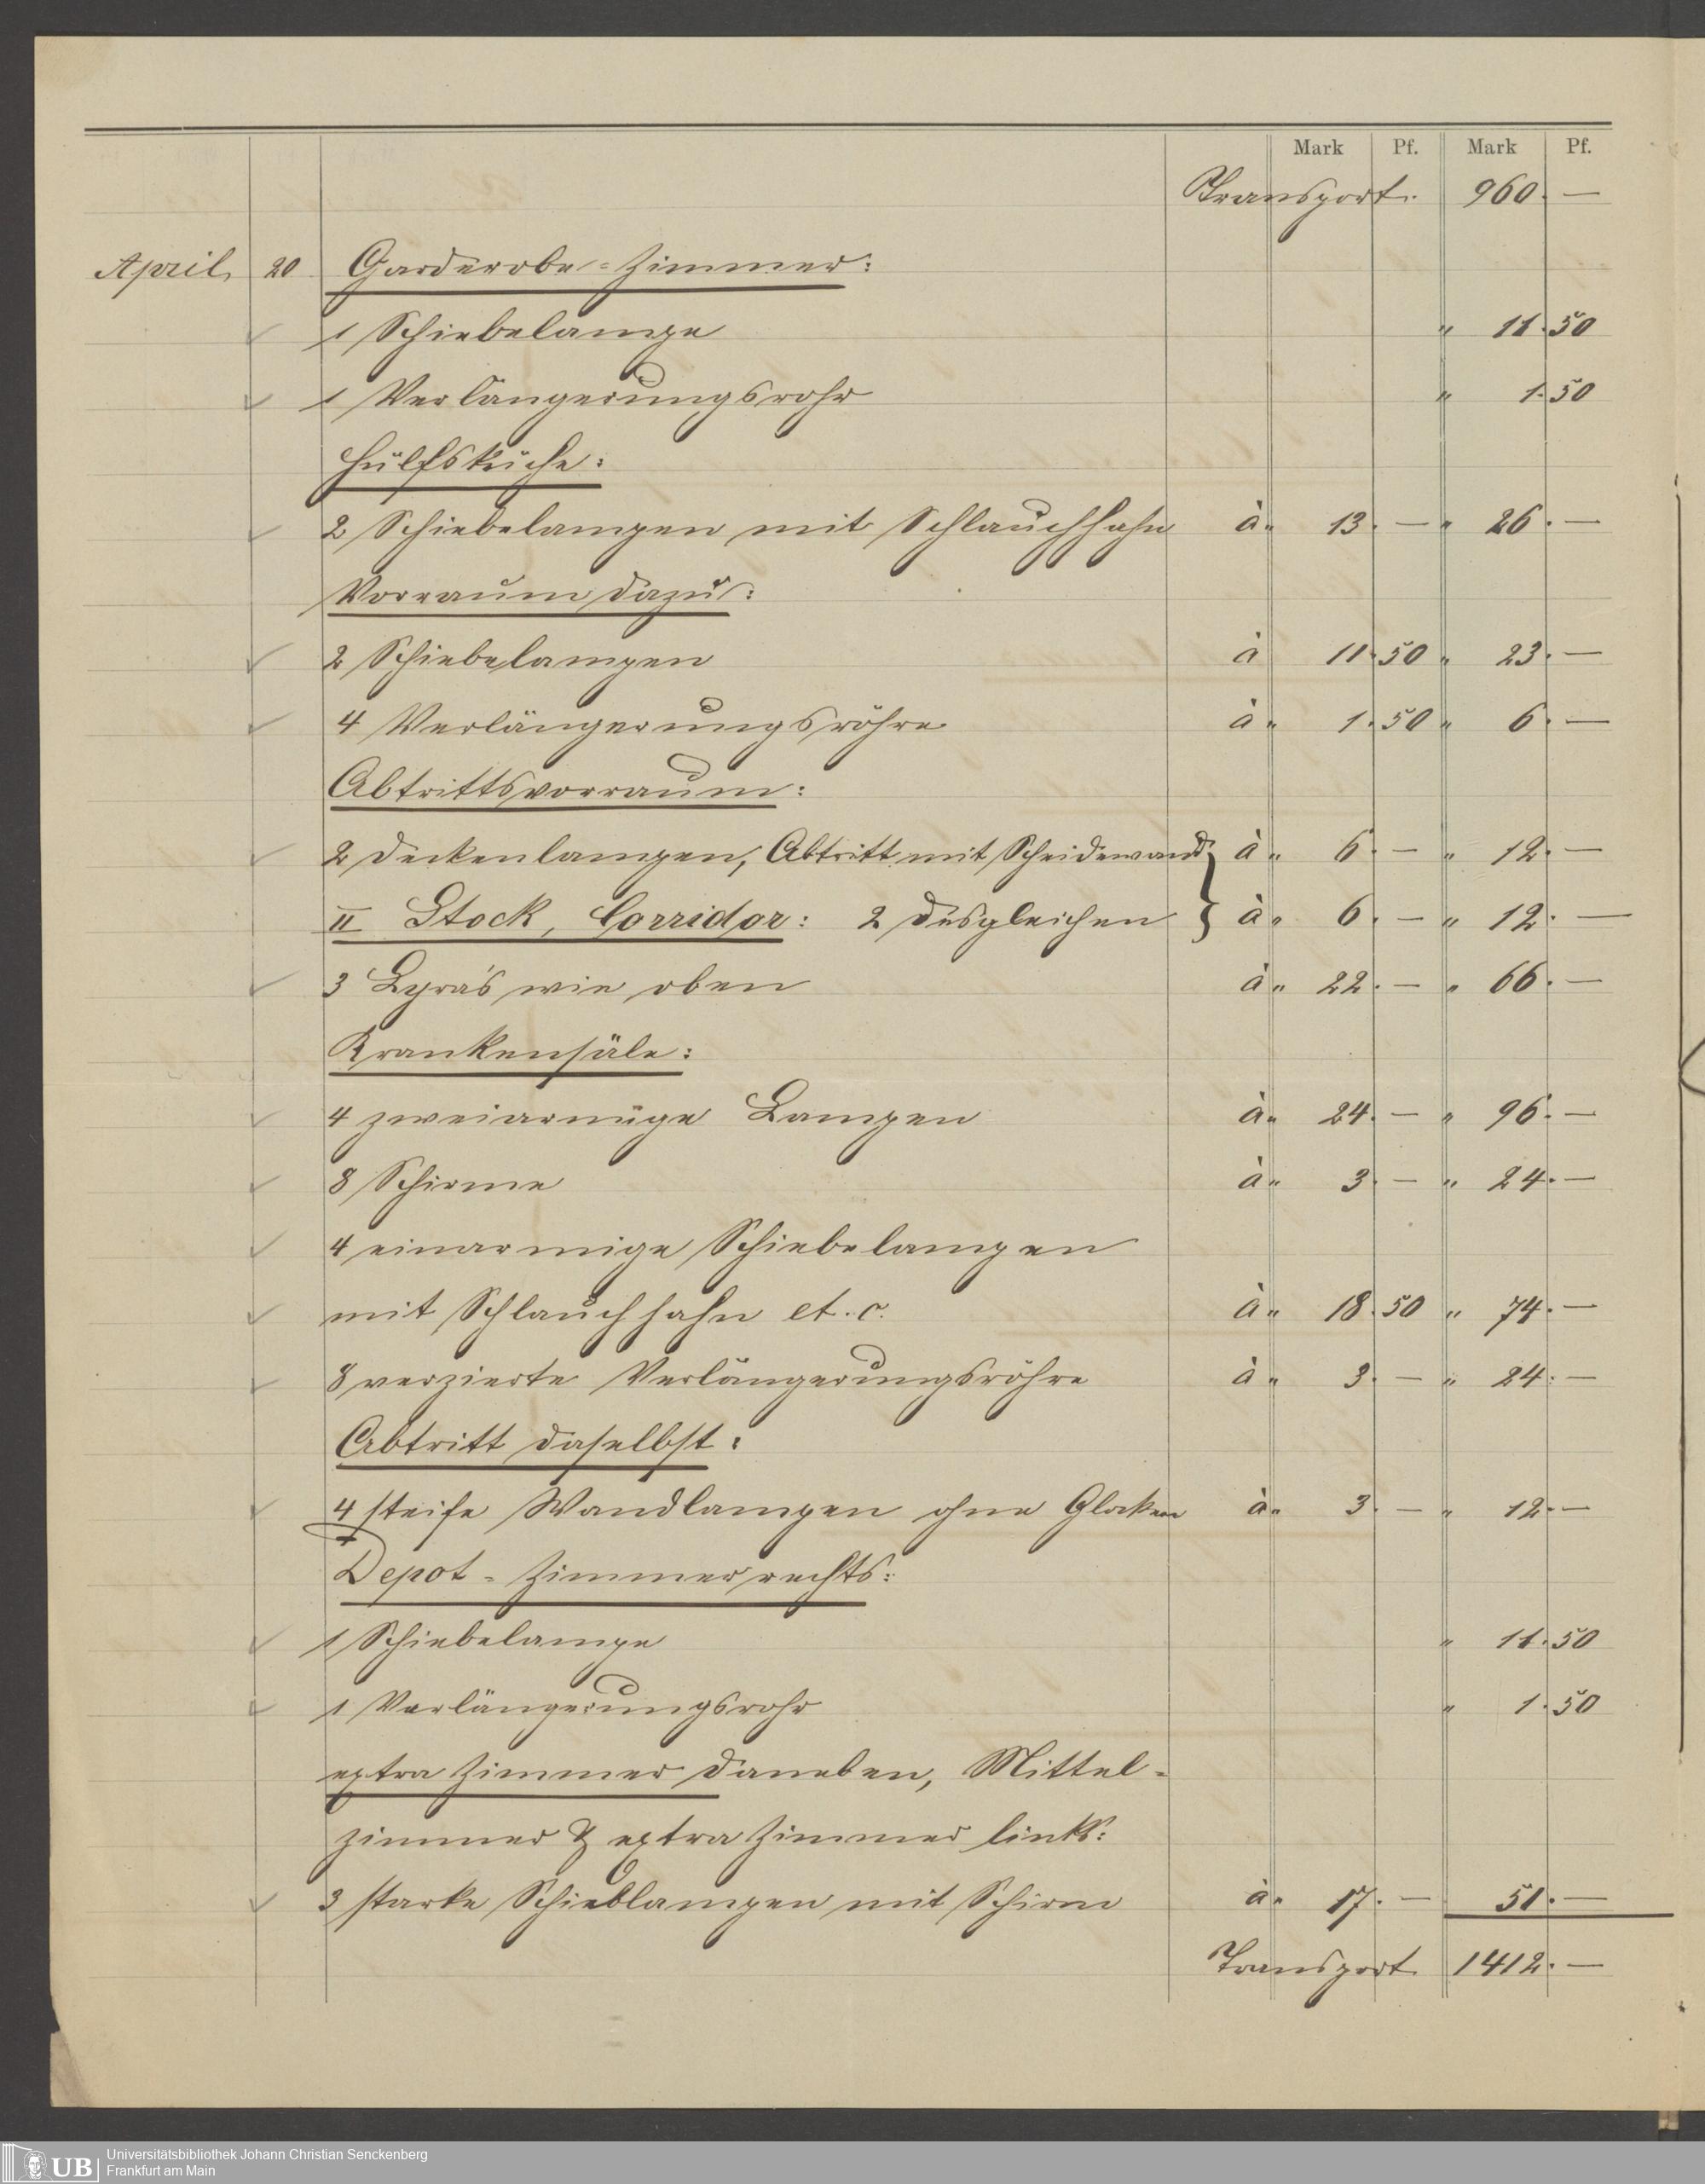 Mark Pf. Mark Pf.
Transport. 960. —
April 20 Garderobe-Zimmer:
1 Schiebelampe " 11. 50
1 Verlängerungsrohr " 1. 50
Hülfsküche:
2 Schiebelampen mit Schlauchhahn à " 13. — " 26. —
Vorraum dazu:
2 Schiebelampen à 11. 50 " 23. —
4 Verlängerungsröhre à " 1. 50 " 6. —
Abtrittsvorraum:
2 Deckenlampen, Abtritt mit Scheidewand à " 6. — " 12. —
II Stock, Corridor: 2 desgleichen à " 6. — " 12. —
3 Lyra's wie oben à " 22. — " 66. —
Krankensäle:
4 zweiarmige Lampen à " 24. — " 96. —
8 Schirme à " 3. — " 24. —
4 einarmige Schiebelampen
mit Schlauchhahn et. c. à " 18. 50 " 74. —
8 verzierte Verlängerungsröhre à " 3. — " 24. —
Abtritt daselbst:
4 steife Wandlampen ohne Glocken à " 3. — " 12. —
Depot-Zimmer rechts:
1 Schiebelampe " 11. 50
1 Verlängerungsrohr " 1. 50
extra Zimmer daneben, Mittel-
zimmer & extra Zimmer links:
3 starke Schieblampen mit Schirm à " 17. — 51. —
Transport 1412. —
UB Universitätsbibliothek Johann Christian Senckenberg
Frankfurt am Main